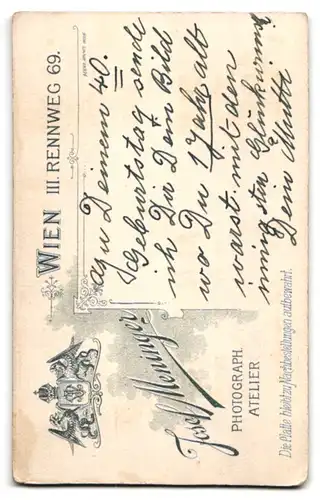 Zu Deinem 40.
Geburtstag sende
ich Dir Dein Bild
wo Du 1 Jahr alt
warst mit den
innigsten Glückwünsch
Dein Mutti
WIEN III. RENNWEG 69.
Josef Moninger
PHOTOGRAPH.
ATELIER
Die Platte bleibt zu Nachbestellungen aufbewahrt.